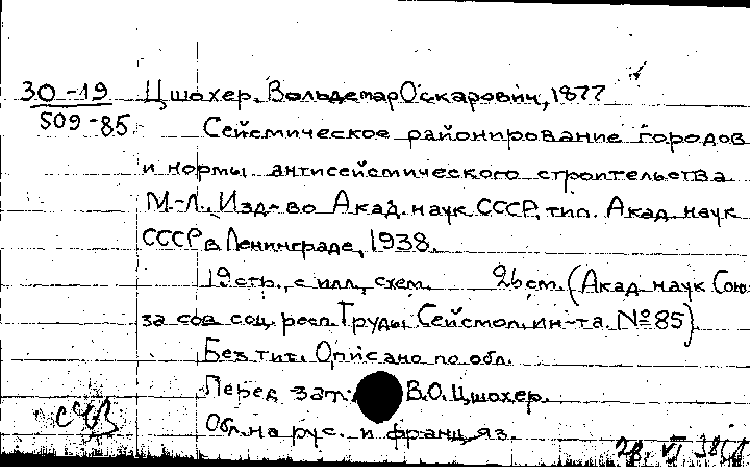 30-19 Цшохер, Вольдемар Оскарович, 1877
509-85
Сейсмическое районирование городов
и нормы антисейсмического строительства
М.-Л., Изд-во Акад. наук СССР, тип. Акад. наук
СССР в Ленинграде, 1938.
19 стр., с илл., схем. 26 см. (Акад. наук Сою-
за сов. соц. респ. Труды Сейсмол. ин-та. № 85).
Без тит. Описано по обл.
Перед заг.: В.О. Цшохер.
Обл. на рус. и франц. яз.